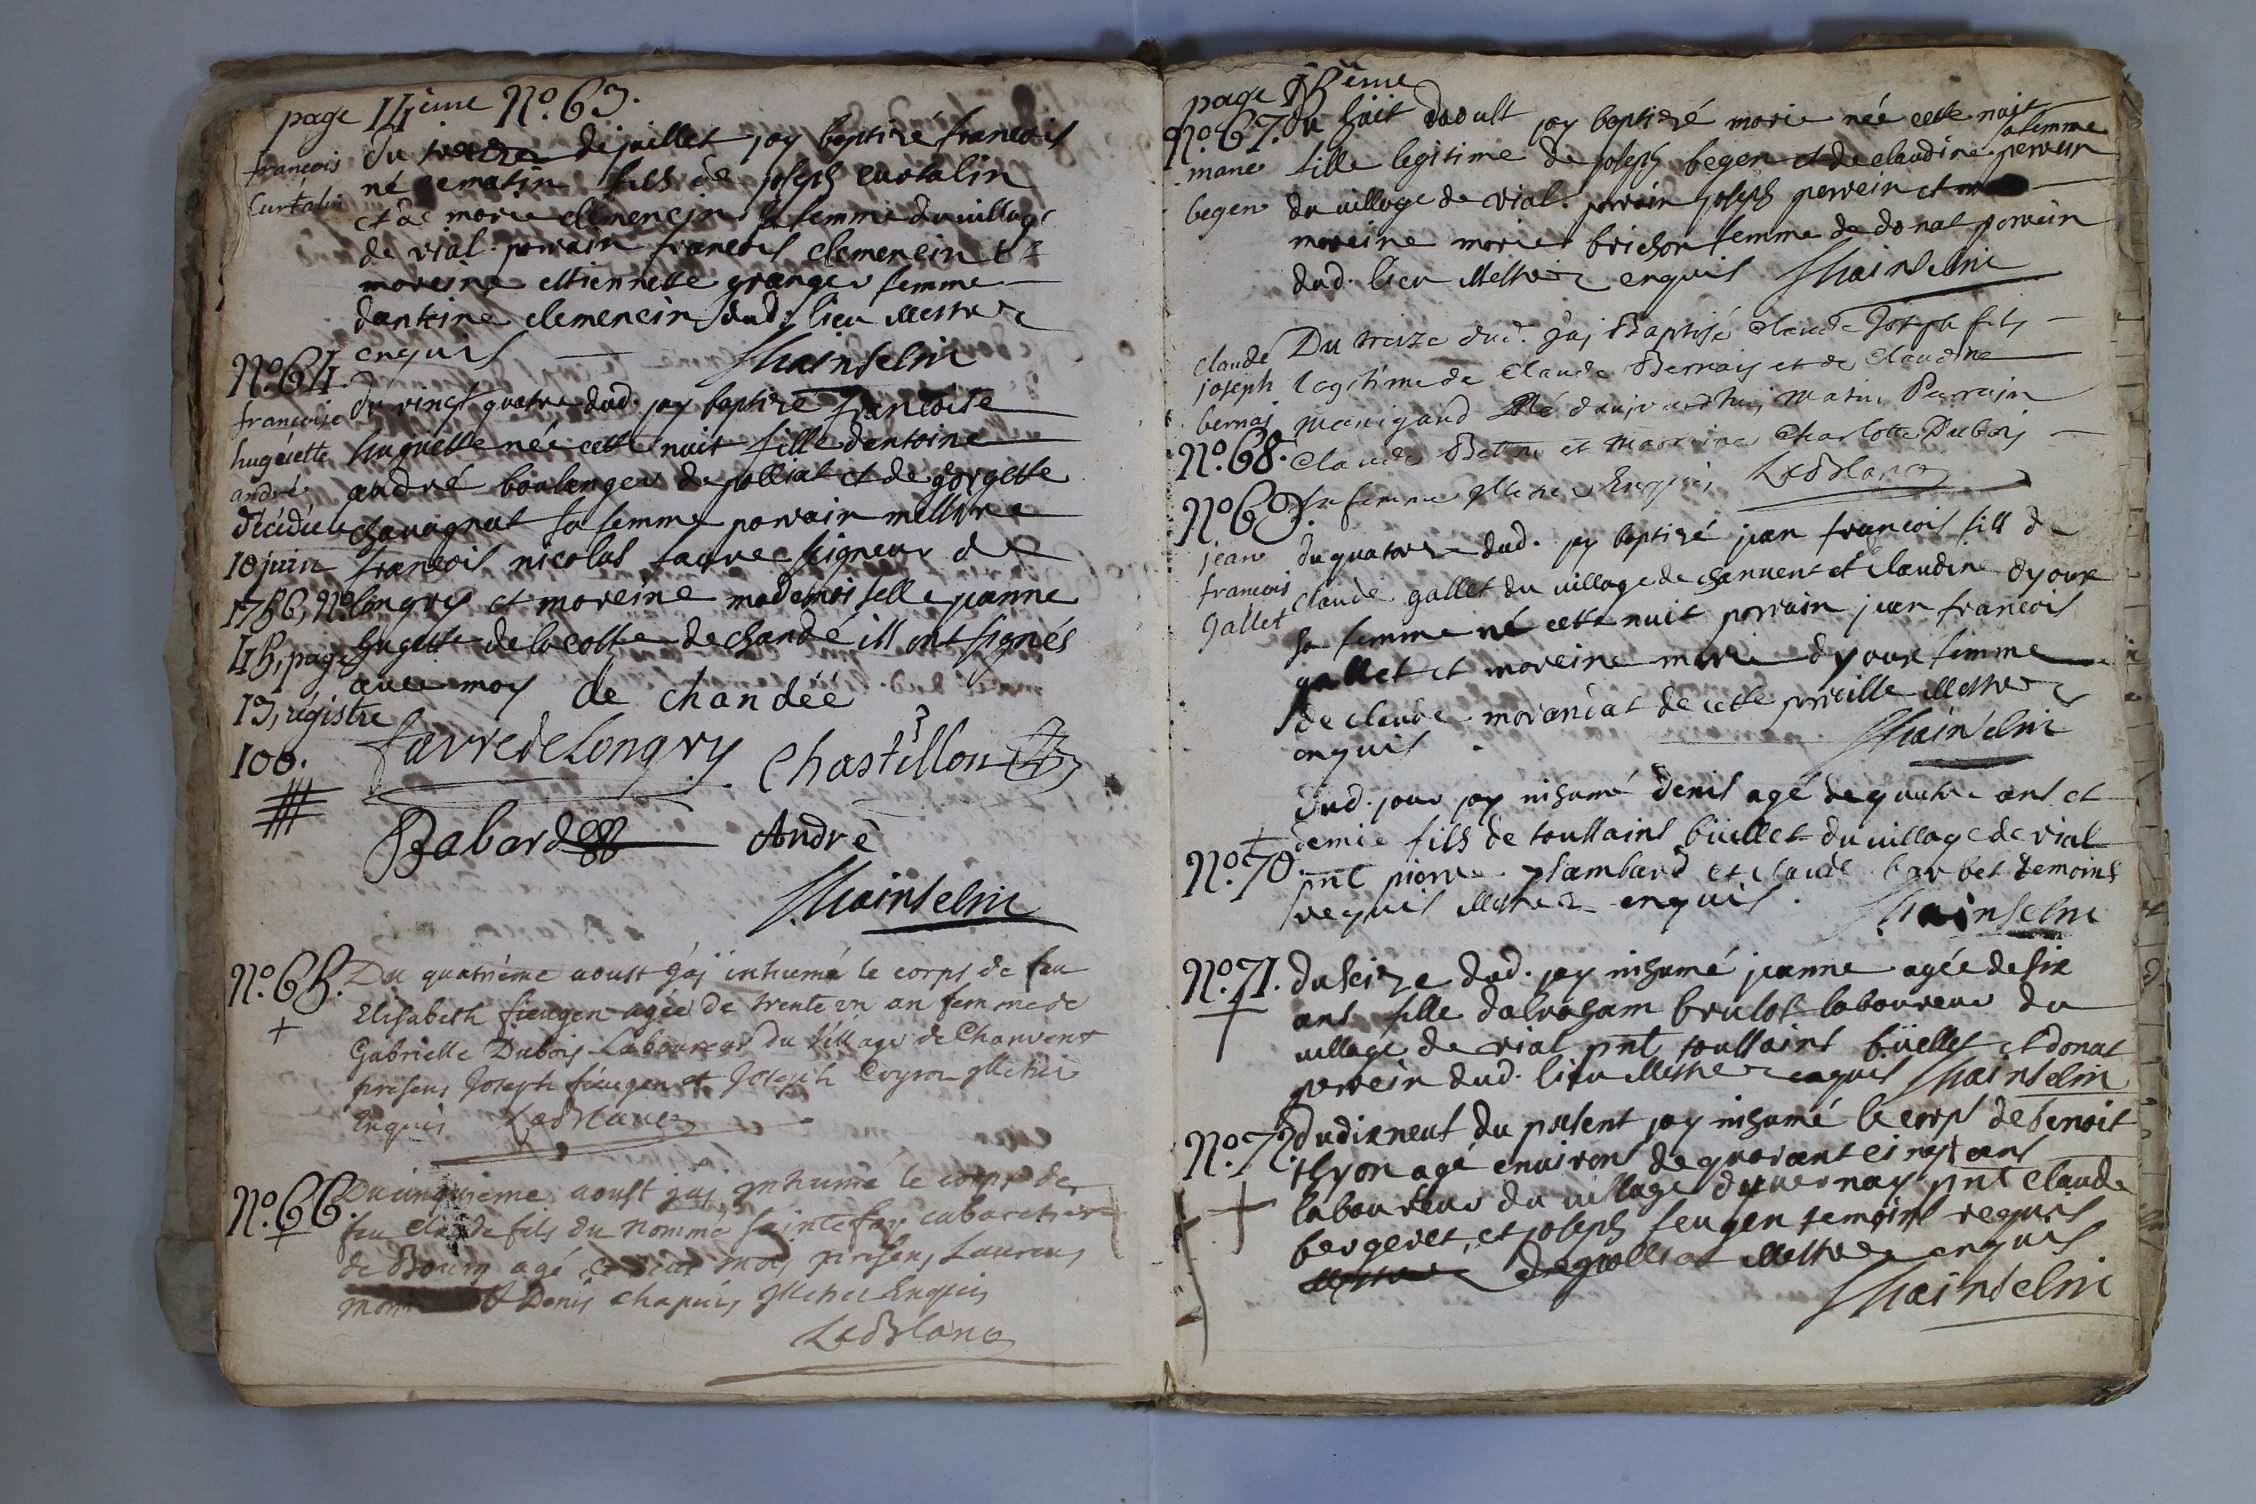 page 14ème N.º 63.
françois
Curtalin
du treize de juillet jay baptizé francois
né ce matin fils de joseph curtalin
et de marie clemencin sa femme du village
de vial. parrain francois clemencin et
mareine estiennette granger femme
dantoine clemencin dud. lieu illettrez
enquis Mainselin
N.º 64.
francoise
huguette
andré
décédée le
10 juin
1786, N.º
45, page
19, régistre
100.
du vingt quatre dud. jay baptizé francoise
huguette née cette nuit fille dantoine
andré boulanger de polliat et de gorgette
chavagnat sa femme parrain messire
francois nicolas favre seigneur de
longry et mareine mademoiselle jeanne
hugette de la cotte de chandé ill ont signés
avec moy de chandée
favre de Longry Chastillon
Babard André
Mainselin
N.º 65.
Du quatriéme aoust jáj inhumé le corps de feu
Elisabeth fieugen agée de trente en an femme de
Gabrielle Dubois Laboureur du Village de Chanvent
presens Joseph fieugen et Joseph illetrés
Enquis LeBlanc
N.º 66.
Du cinquieme aoust jaj inhumé le corps de
feu Claude fils du nommé sainte foy cabaretier
de Bourg agé de mois presens Laurens
et Denis Chapuis illetrés Enquis
LeBlanc
page 15ème
N.º 67.
marie
begen
du huit daoust jay baptizé marie née cette nuit
fille legitime de joseph begen et de claudine perrein sa femme
du village de vial. parrain joseph perrein et
mareine marie brichon femme de donat perrein
dud. lieu illettrez enquis Mainselin
claude
joseph
bernai
N.º 68.
Du treize dud. Jaj Baptisé Claude Joseph fils
legitime de Claude Bernais et de Claudine
Manigand Né daujourdhui matin Parrain
Claude et Marraine Charlotte Dubois
sa femme illetrés Enquis LeBlanc
N.º 69.
jean
francois
Gallet
du quatorze dud. jay baptizé jean francois fils de
claude gallet du village de chanvent et claudine dyoux
sa femme né cette nuit parrain jean francois
gallet et mareine marie dyoux femme
de claude morandat de cette paroille illettrez
enquis. Mainselin
N.º 70.
dud. jour jay inhumé denis agé de quatre ans et
demie fils de toussains büellet du village de vial
pnt pierre plambard et claude barbet temoins
requis illettrez enquis. Mainselin
N.º 71.
du seize dud. jay inhumé jeanne agée de six
ans fille dabraham brulot laboureur du
village de vial pnt toussains büellet et donat
perrein dud. lieu illettrez enquis Mainselin
N.º 72.
du dixneuf du present jay inhumé le corps de benoit
thyon agé environs de quarant cinq ans
laboureur du village dyvernay pnt claude
bergeret, et joseph feugen temoins requis
de polliat illettrez enquis
Mainselin